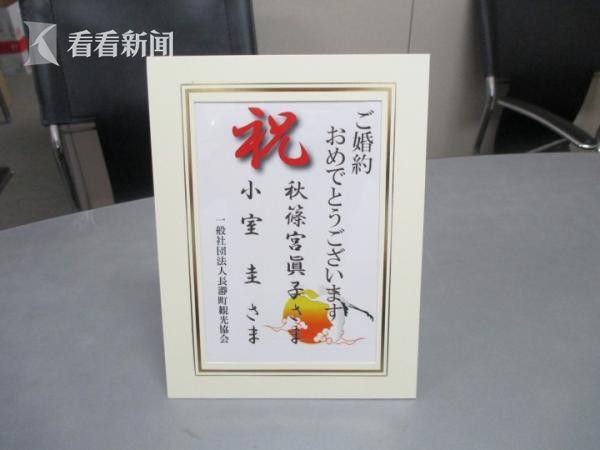 看看新闻
祝
ご婚約
おめでとうございます
秋篠宮眞子さま
小室 圭 さま
一般社団法人長瀞町観光協会